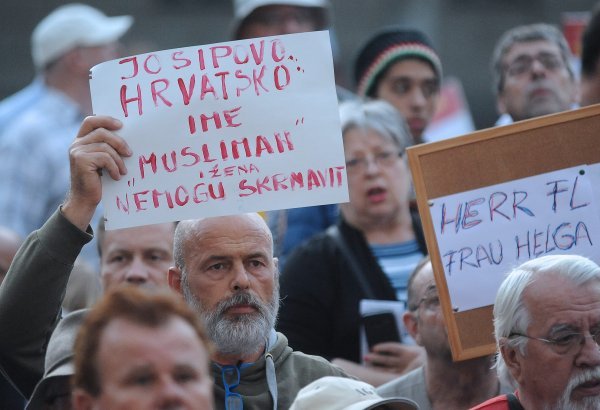 JOSIPOVO.
HRVATSKO.
IME
"MUSLIMAN"
I ŽENA
NEMOGU SKRNAVIT
HERR FL
FRAU HELGA